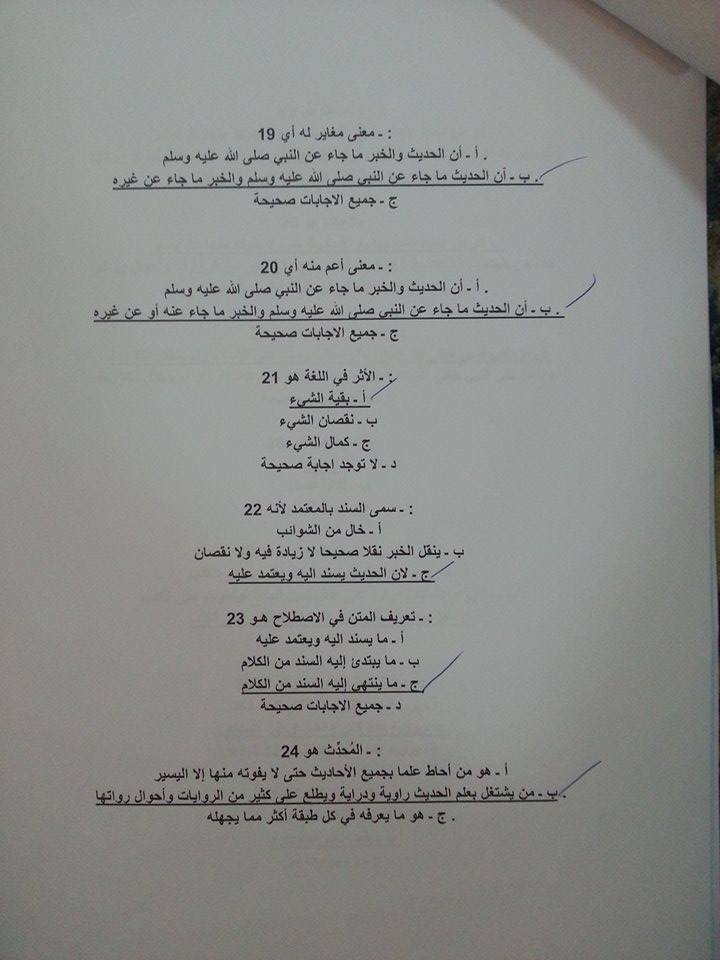 19 ـ معنى مغاير له أي :
أ ـ أن الحديث والخبر ما جاء عن النبي صلى الله عليه وسلم .
ب ـ أن الحديث ما جاء عن النبي صلى الله عليه وسلم والخبر ما جاء عن غيره .
ج ـ جميع الاجابات صحيحة
20 ـ معنى أعم منه أي :
أ ـ أن الحديث والخبر ما جاء عن النبي صلى الله عليه وسلم .
ب ـ أن الحديث ما جاء عن النبي صلى الله عليه وسلم والخبر ما جاء عنه أو عن غيره .
ج ـ جميع الاجابات صحيحة
21 ـ الأثر في اللغة هو :
أ ـ بقية الشيء
ب ـ نقصان الشيء
ج ـ كمال الشيء
د ـ لا توجد اجابة صحيحة
22 ـ سمى السند بالمعتمد لأنه :
أ ـ خال من الشوائب
ب ـ ينقل الخبر نقلا صحيحا لا زيادة فيه ولا نقصان
ج ـ لان الحديث يسند اليه ويعتمد عليه
23 ـ تعريف المتن في الاصطلاح هو :
أ ـ ما يسند اليه ويعتمد عليه
ب ـ ما يبتدئ إليه السند من الكلام
ج ـ ما ينتهي إليه السند من الكلام
د ـ جميع الاجابات صحيحة
24 ـ المُحدِّث هو :
أ ـ هو من أحاط علما بجميع الأحاديث حتى لا يفوته منها إلا اليسير
ب ـ من يشتغل بعلم الحديث راوية ودراية ويطلع على كثير من الروايات وأحوال رواتها .
ج ـ هو ما يعرفه في كل طبقة أكثر مما يجهله .